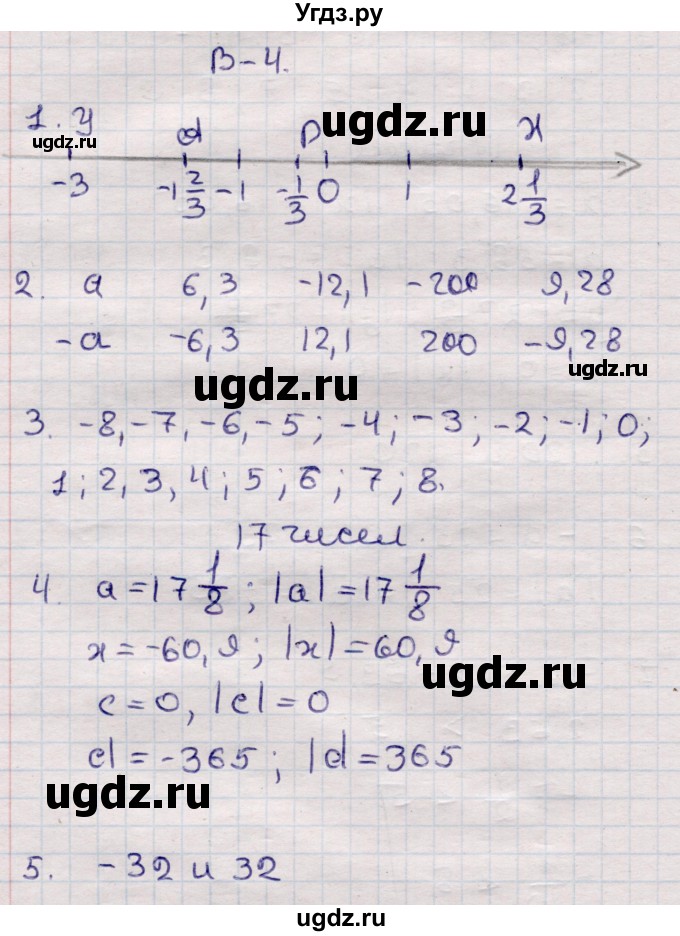 Угдз.ру
В-4.
1. y d p x
ugdz.ru
ugdz.ru
-3 -1 2/3 -1 -1/3 0 1 2 1/3
2. a 6,3 -12,1 -200 9,28
-a -6,3 12,1 200 -9,28
ugdz.ru
ugdz.ru
3. -8,-7,-6,-5; -4; -3; -2; -1; 0;
1; 2, 3, 4; 5; 6; 7; 8.
17 чисел.
4. a=17 1/8; |a|=17 1/8
ugdz.ru
ugdz.ru
x=-60,9; |x|=60,9
ugdz.ru
c=0, |c|=0
d=-365; |d=365
ugdz.ru
5. -32 и 32
ugdz.ru